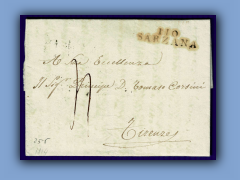 110
SARZANA
A Sua Eccellenza
Il Sigr Principe D. Tomaso Corsini
Firenze